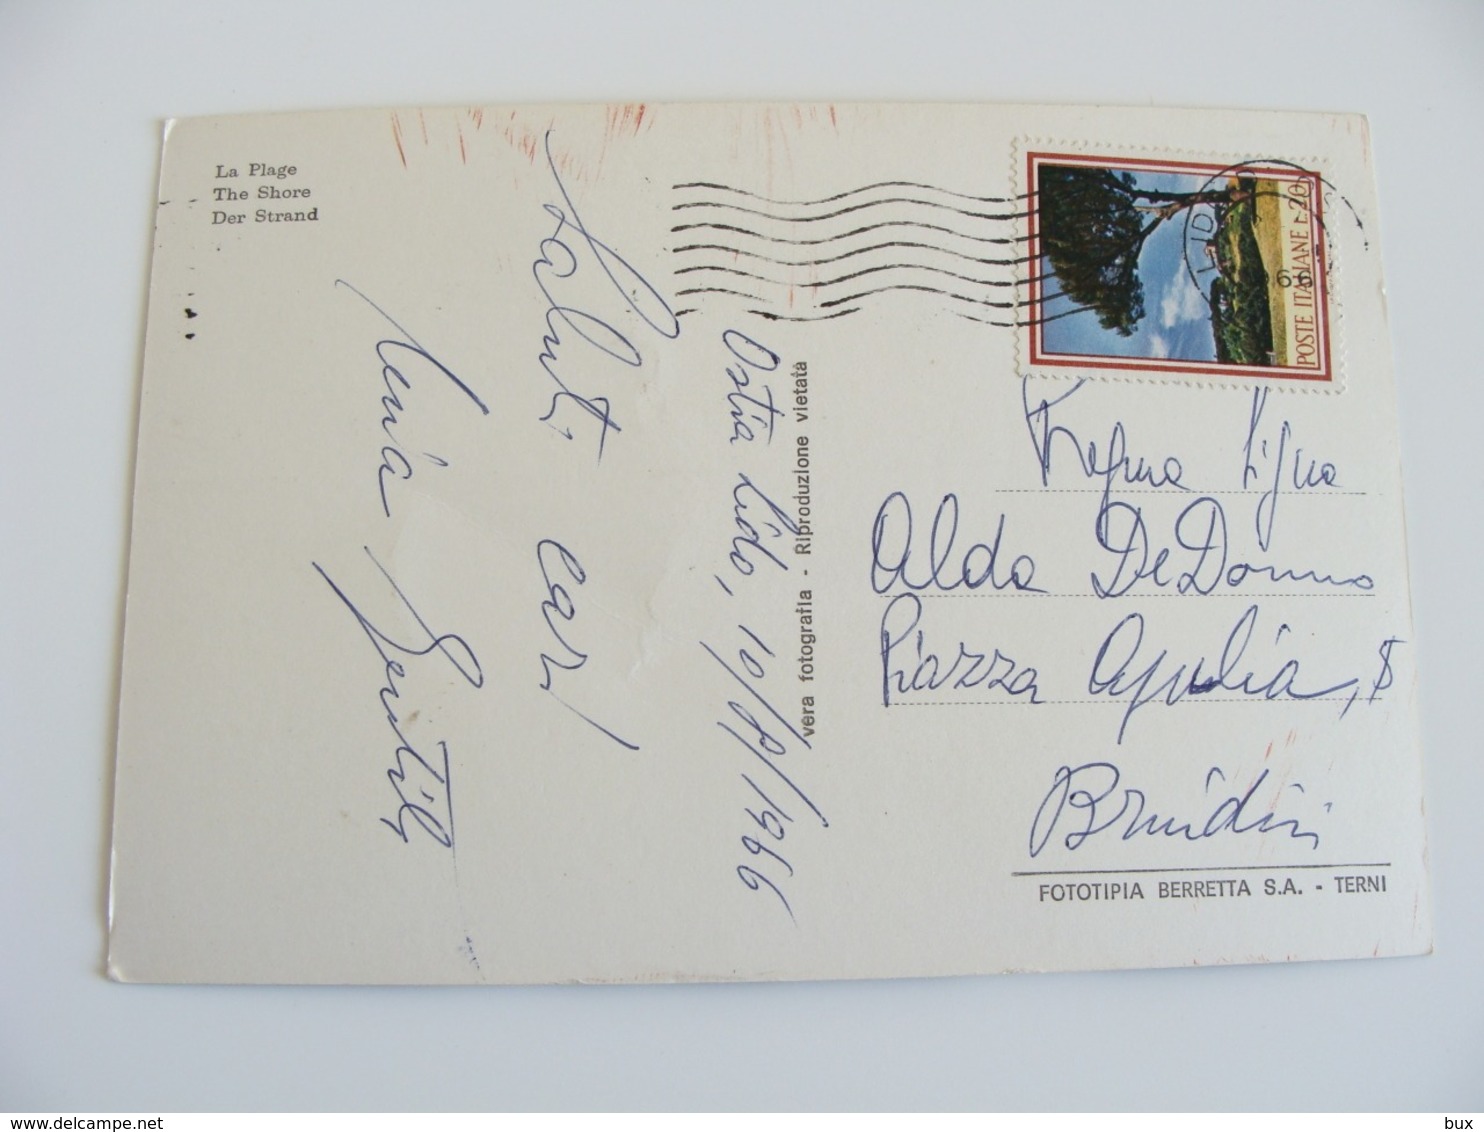 La Plage
The Shore
Der Strand
Ostia Lido, 10/8/1966
Saluti cari
Gentile
vera fotografia - Riproduzione vietata
POSTE ITALIANE L. 20
LIDO
66
Alda De Donno
Piazza Apulia,
Brindisi
FOTOTIPIA BERRETTA S.A. - TERNI
www.delcampe.net
bux